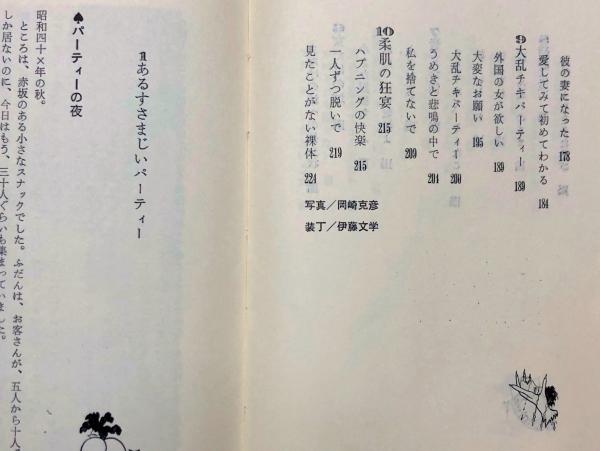 彼の妻になった 178
愛してみて初めてわかる 184
9 大乱チキパーティー 189
外国の女が欲しい 189
大変なお願い 195
大乱チキパーティー 200
うめきと悲鳴の中で 204
私を捨てないで 209
10 柔肌の狂宴 215
ハプニングの快楽 215
一人ずつ脱いで 219
見たことがない裸体 224
写真/岡崎克彦
装丁/伊藤文学
1 あるすさまじいパーティー
♠パーティーの夜
昭和四十×年の秋。
ところは、赤坂のある小さなスナックでした。ふだんは、お客さんが、五人から十人
しか居ないのに、今日はもう、三十人ぐらいも集まっていました。